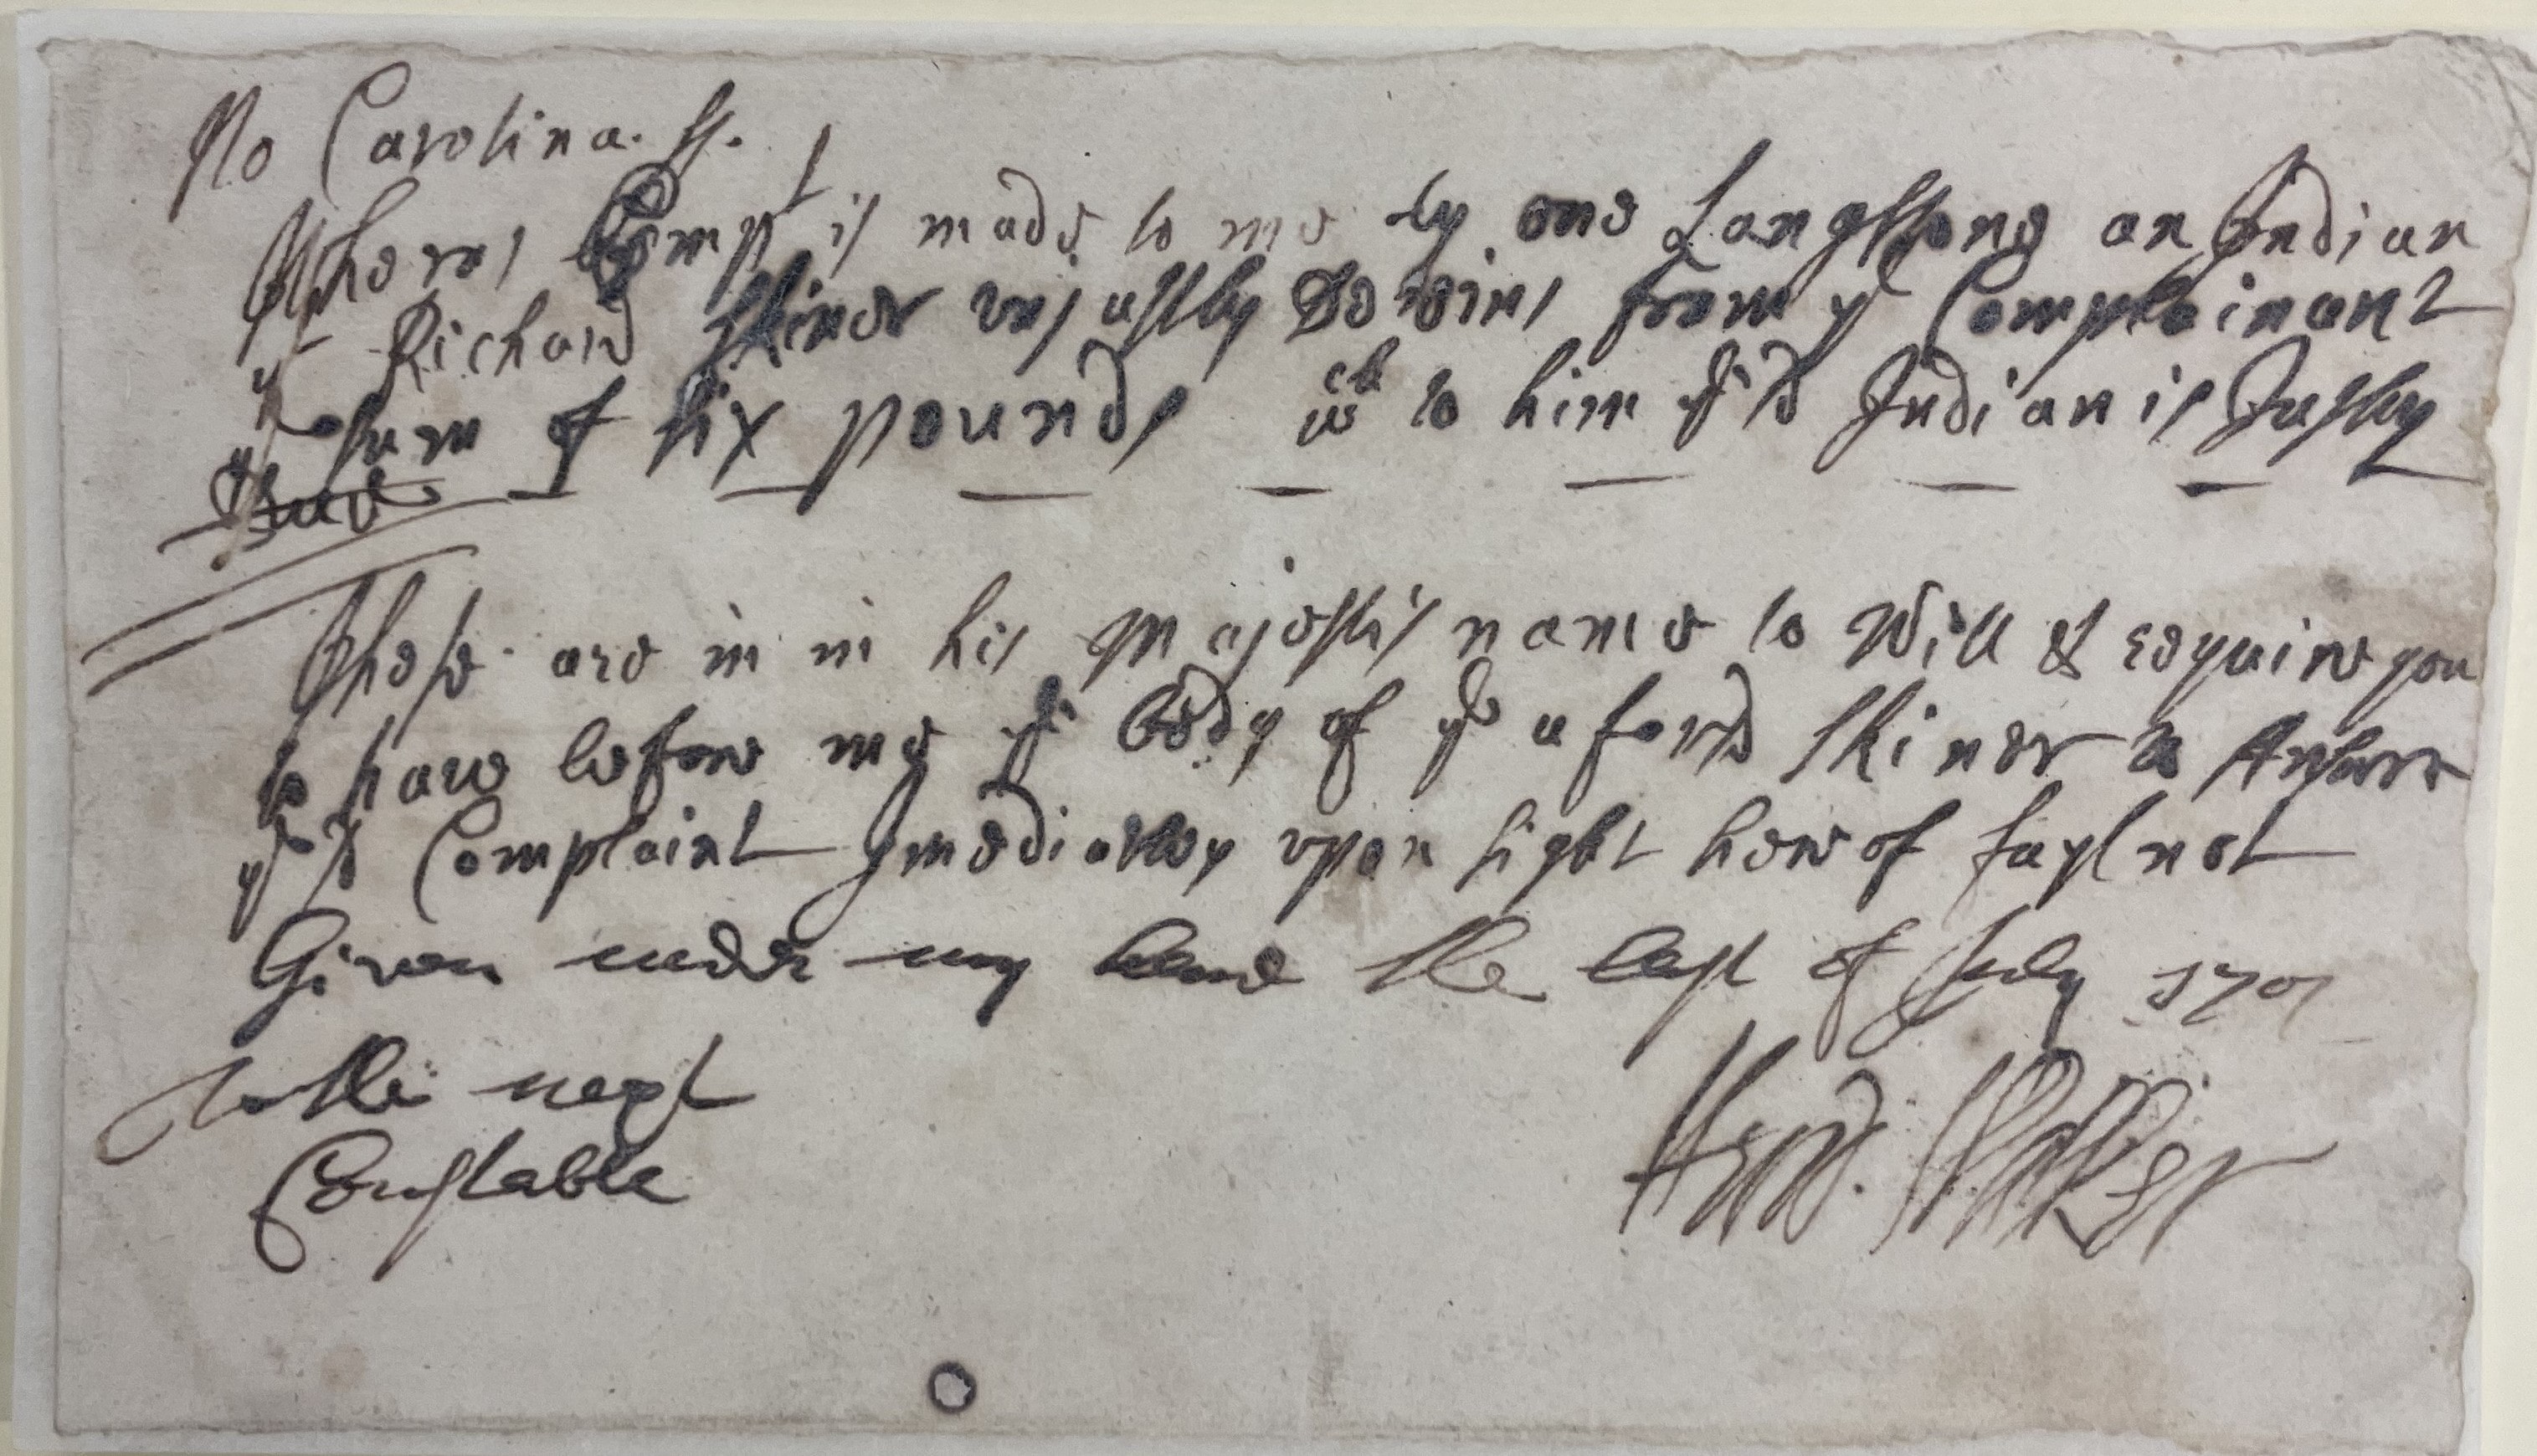 No Carolina. ss.
Wheras Compt is made to me by one Langstone an Indian
yt Richard Skiner vnjustly Deteins from ye Complainant
ye sum of six pounds wch to him ye sd Indian is Justly
Due
These are in in his Majesties name to Will & require you
to have before me ye body of ye aforesd Skiner to Answer
ye sd Complaint Jmediatley vpon sight hereof fayl not
Given under my hand the last of July 1701
To the next
Constable
Hend. Walker